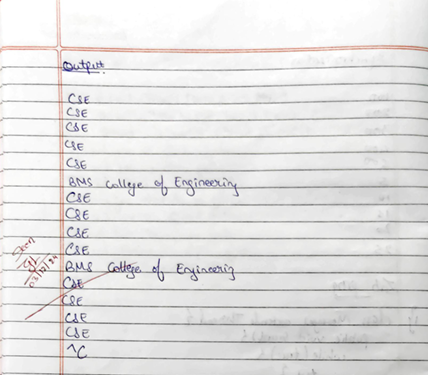 Output
CSE
CSE
CSE
CSE
CSE
BMS College of Engineering
CSE
CSE
CSE
CSE
BMS College of Engineering
CSE
CSE
CSE
CSE
^C
03/12/24